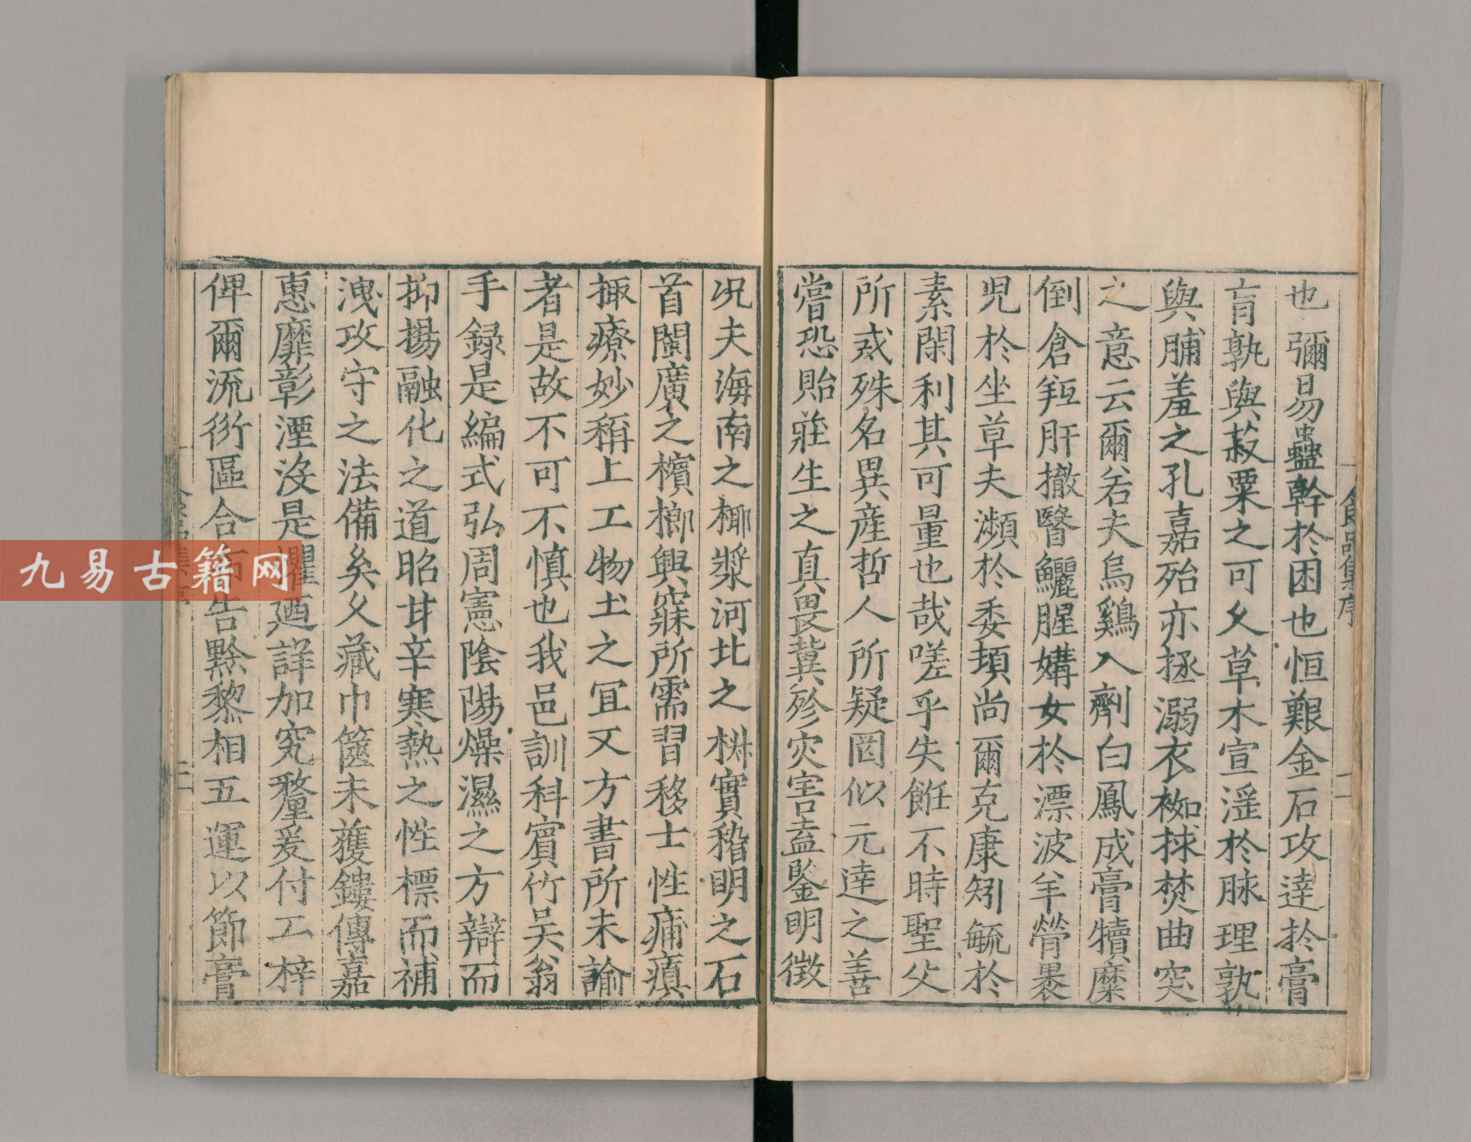 也彌易蠱幹於困也恒艱金石攻達扵膏
肓孰與菽粟之可乆草木宣滛扵脉理孰
與脯羞之孔嘉殆亦拯溺衣袽捄焚曲突
之意云爾若夫烏鷄入劑白鳳成膏犢糜
倒倉羫肝撤瞖鱺腥媾女扵漂波羊膋褁
児扵坐草夫瀕扵委頓尚爾克康矧毓扵
素閑利其可量也哉嗟乎失餁不時聖父
所戒殊名異産哲人所疑罔似元達之善
嘗恐貽莊生之真畏冀殄灾害盍鑒明徴
况夫海南之椰漿河北之椒實稽明之石
首閩廣之檳榔興寐所需習移士性痡瘨
掫療妙稱上工物土之宜又方書所未諭
者是故不可不慎也我邑訓科賓竹吴翁
手録是編式弘周憲陰陽燥濕之方辯而
抑揚融化之道昭甘辛寒熱之性標而補
洩攻守之法備矣乆藏巾篋未獲鏤傳嘉
惠靡彰湮沒是懼廼詳加究釐爰付工梓
俾爾流衍區合 告黔黎相五運以節膏
食品集序
二
三
九易古籍网